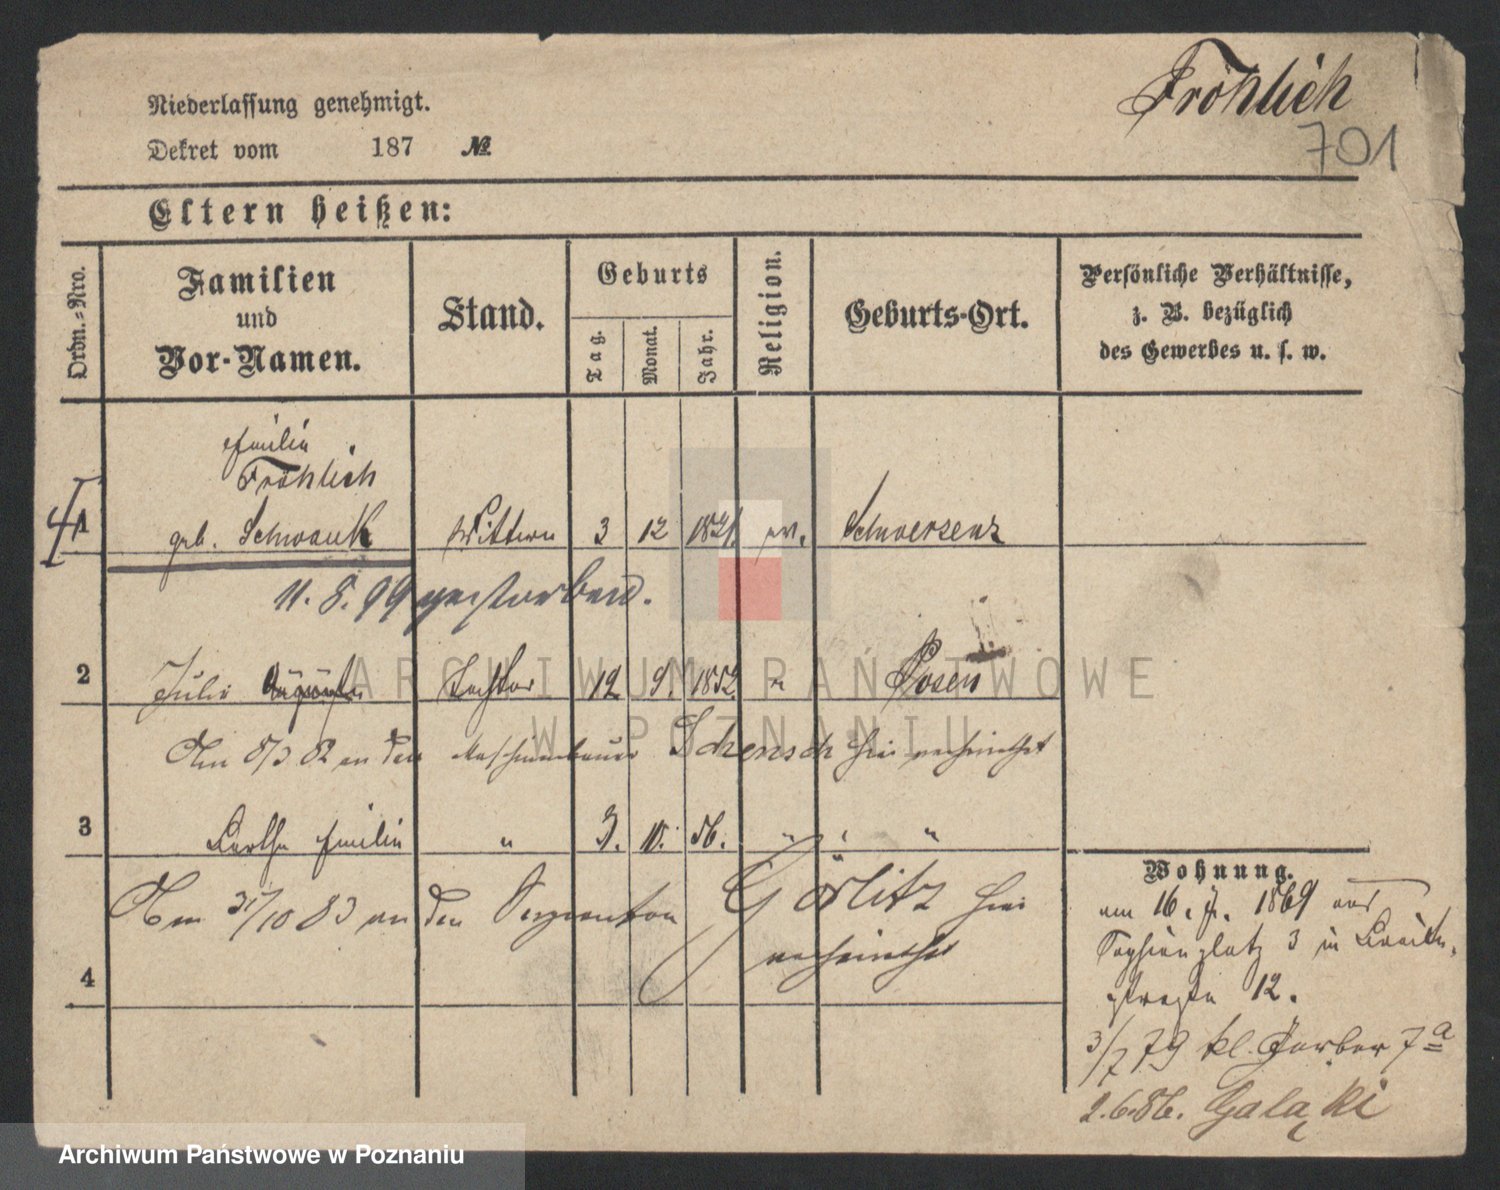 Fröhlich
701
Niederlassung genehmigt.
Dekret vom 187 №
Eltern heißen:
Ordn.-Nro.
Familien
und
Vor-Namen.
Stand.
Geburts
Tag.
Monat.
Jahr.
Religion.
Geburts-Ort.
Persönliche Verhältnisse,
z. B. bezüglich
des Gewerbes u. s. w.
Emilie
Fröhlich
1 geb. Schwank Wittwe 3 12 1821. ev. Schwersenz
11. 8. 99 gestorben.
2 Julie Auguste Tochter 12 9. 1852 " Posen
Am 8/3 82 an den Maschinenbauer Schensch hier verheirathet
3 Bertha Emilie " 3. 11. 56. " "
Am 31/10 83 an den Görlitz hier
verheirathet
4
Wohnung.
am 16. 1869 aus
Sophienplatz 3 in Breite-
straße 12.
3/7 79 kl. Gerber 7a
2.6.86.
ARCHIWUM PAŃSTWOWE
W POZNANIU
Archiwum Państwowe w Poznaniu